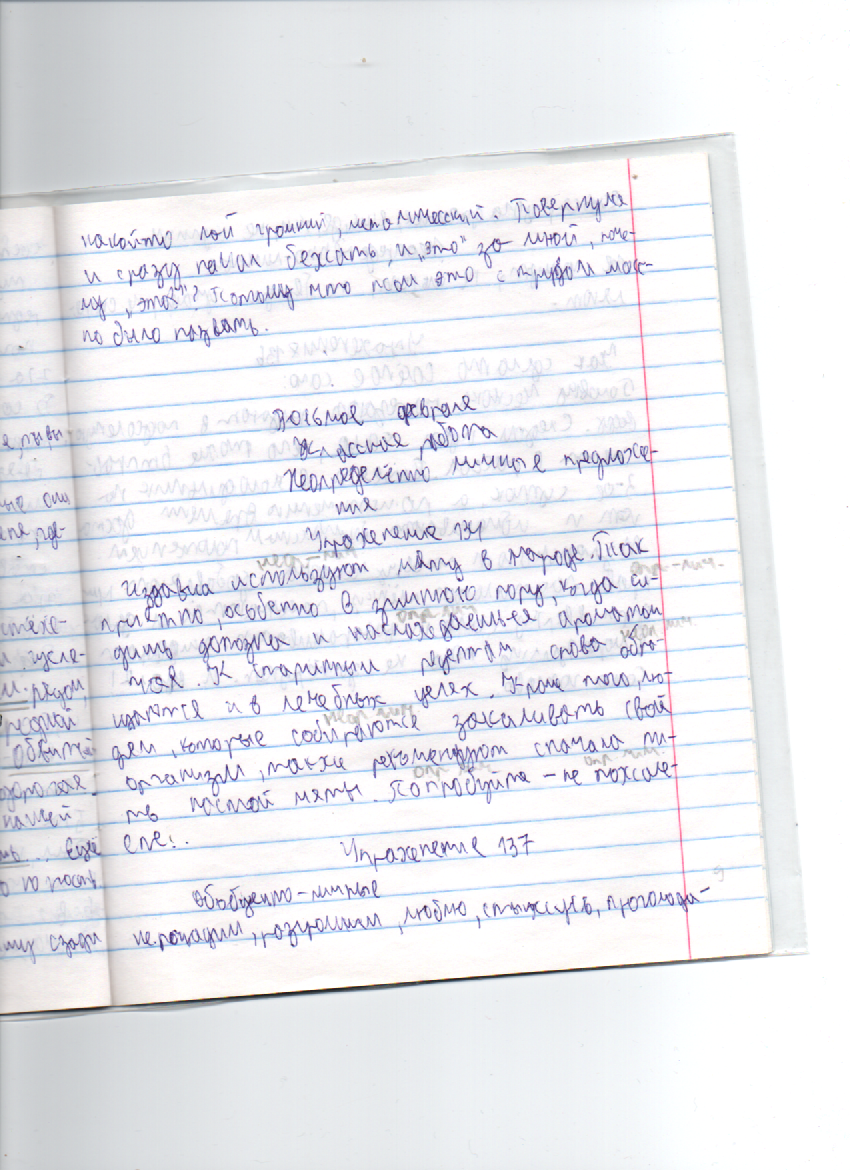 какойто вой громкий, металический. Повернулся
и сразу начал бежать, и „это" за мной, поче-
му „это"? Потому что псом это с трудом мож-
но было назвать.
Восьмое февраля
Классная работа
Неопределённо личные предложе-
ния
Упражнение 134
Издавна используют мяту в народе. Так
приятно, особенно в зимнюю пору, когда си-
дишь допоздна и наслаждаешься ароматом
чая. К старинным рецептам снова обра-
щаются и в лечебных целях. Кроме того, лю-
дям, которые собираются закаливать свой
организм, также рекомендуют сначала пи-
ть настой мяты. Попробуйте – не пожале-
ете!.
Упражнение 137
обобщенно-личные
не пощадим, разгромим, люблю, стыжусь, проголода-